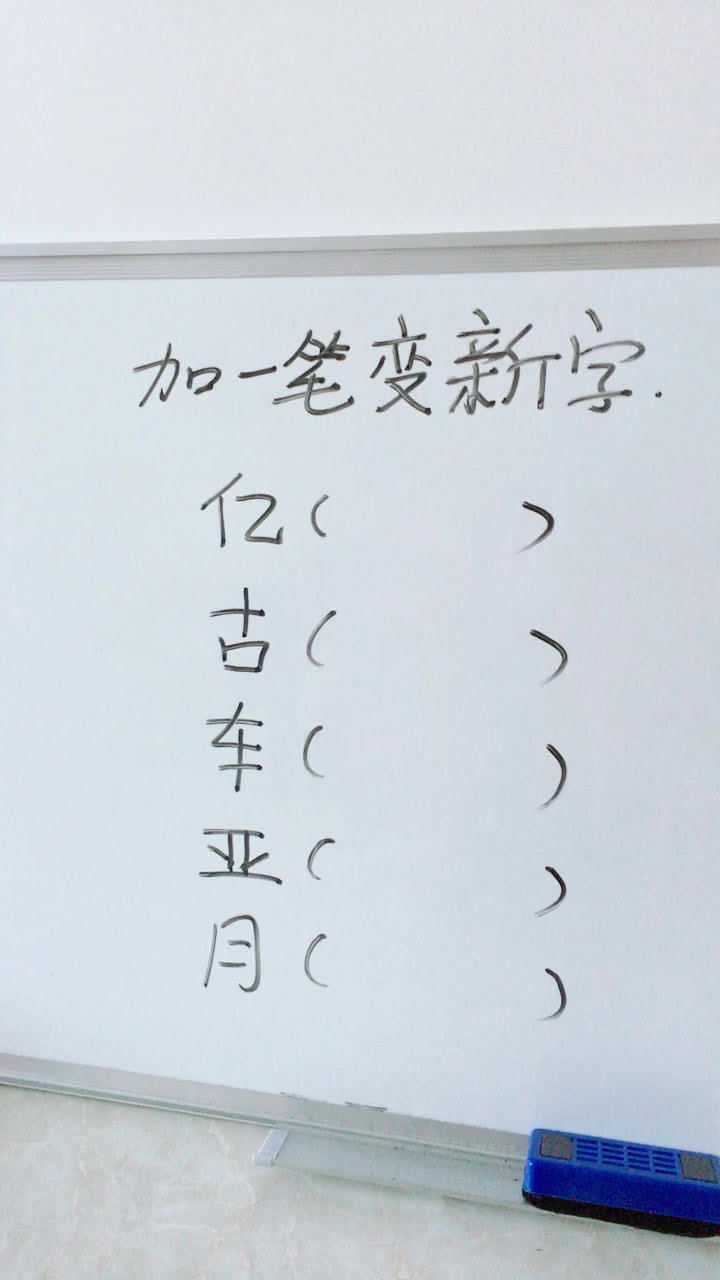 加一笔变新字.
亿(    )
古(    )
车(    )
亚(    )
月(    )